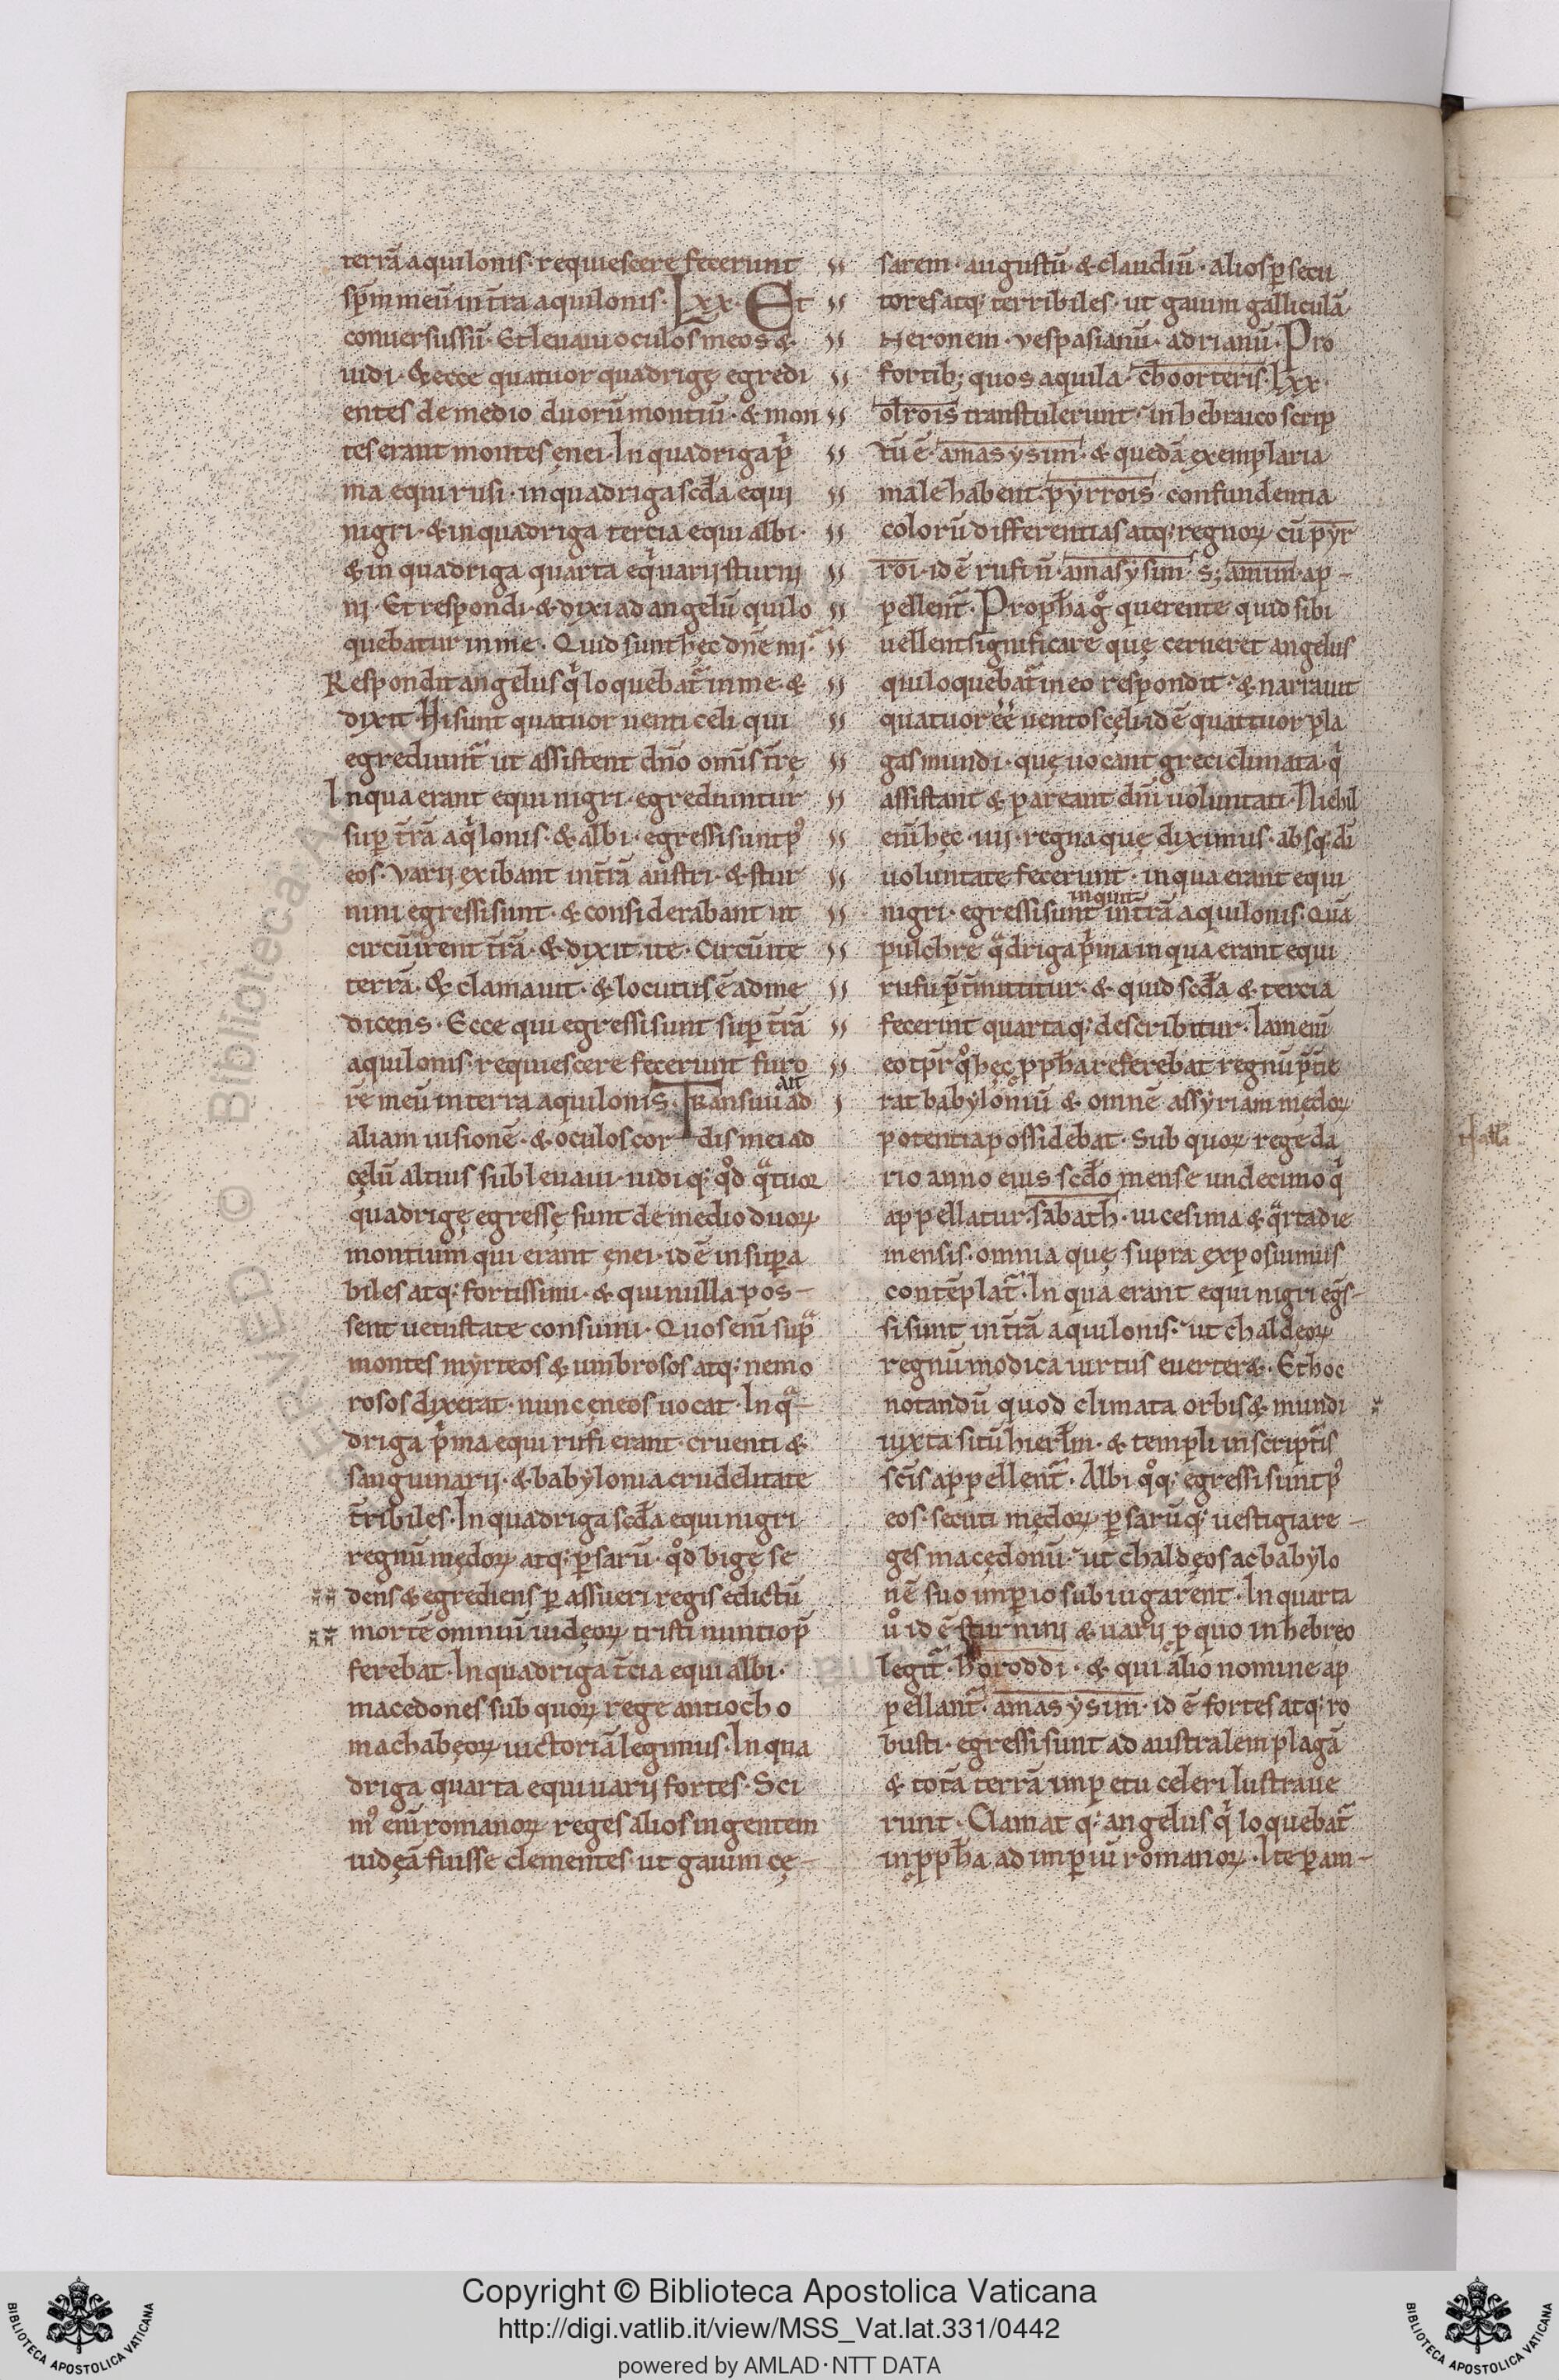 terrā aquilonis· requiescere fecerunt
sp̄m meū in t̄ra aquilonis· Lxx· Et
conuersus sū· Et leuaui oculos meos &
uidi· & ecce quatuor quadrigę egredi
entes de medio duorū montiū· & mon
tes erant montes ęnei· In quadriga pͥ
ma equi rufi· in quadriga scd̄a equi
nigri· & in quadriga tercia equi albi·
& in quadriga quarta eqͥ uarij sturni
ni· Et respondi· & dixi ad angelū qui lo
quebatur in me· Quid sunt hęc dn̄e mi·
Respondit angelus qͥ loquebat᷑ in me· &
dixit· Hi sunt quatuor uenti celi qui
egrediunt᷑ ut assistent dn̄o om̄is t̄rę
In qua erant equi nigri· egrediuntur
suꝑ t̄rā aqͥlonis· & albi· egressi sunt pꝰ
eos· Varij exibant in t̄rā austri· & stur
nini egressi sunt· & considerabant ut
circūirent t̄rā· & dixit· ite· Circūite
terrā· & clamauit· & locutus ē ad me
dicens· Ecce qui egressi sunt suꝑ t̄rā
aquilonis· requiescere fecerunt furo
rē meū in terra aquilonis· Transiui ait ad
aliam uisionē· & oculos cordis mei ad
cęlū altius subleuaui· uidi qꝫ qͦd qͣtuor
quadrigę egressę sunt de medio duoꝝ
montium qui erant ęnei· id ē insuꝑa
biles atqꝫ fortissimi· & qui nulla pos-
sent uetustate consumi· Quos eni̅ supͣ
montes myrteos & umbrosos atqꝫ nemo
rosos dixerat· nunc ęneos uocat· In qͣ-
driga pͥma equi rufi erant· cruenti &
sanguinarij· & babylonia crudelitate
t̄ribiles· In quadriga scd̄a equi nigri
regnū medoꝝ atqꝫ ꝑsarū· qͦd bigę se
dens & egrediens ꝑ assueri regis edictū
mortē omniū iudęoꝝ tristi nuntio p̄
ferebat· In quadriga t̄cia equi albi·
macedones sub quoꝝ rege antiocho
machabęoꝝ uictoriā legimus· In qua
driga quarta equi uarij fortes· Sci
mꝰ eni̅ romanoꝝ reges alios in gentem
iudęā fuisse clementes· ut gaium cę-
sarem· augustū· & claudiū· alios ꝑsecu
tores atqꝫ terribiles· ut gaium galliculā
Neronem· Vespasianū· adrianū· Pro
fortibꝫ quos aquila· choorteris· Lxx·
transtulerunt· in hebraico scrip
tū ē· amasysim· & quedā exemplaria
male habent· pyrrois· confundentia
colorū differentias atqꝫ regnoꝝ cū pyr
roi· id ē rufi n̄· amasysim· sꝫ anium· ap-
pellent᷑· Prophā gͦ querente quid sibi
uellent significare quę cerneret angelus
qui loquebat᷑ in eo respondit· & narrauit
quatuor ēē uentos cęli id ē quattuor pla
gas mundi· quę uocant greci climata· qͥ
assistant & pareant dn̄i uoluntati· Nichil
eni̅ hęc· iiij· regna quę diximus· absqꝫ di̅
uoluntate fecerunt· in qua erant equi
nigri· egressi sunt inquit in t̄rā aquilonis· Quā
pulchre qͣdriga pͥma in qua erant equi
rufi p̄t̄mittitur· & quid scd̄a & tercia
fecerint quartaqꝫ describitur· Iam eni̅
eo tp̄r qͦ hęc ꝓph̄a referebat regnū p̄t̄ie
rat babyloniū & omnē assyriam medoꝝ
potentia possidebat· Sub quoꝝ rege da
rio anno eius scd̄o mense undecimo qͥ
appellatur· sabath· uicesima & qͣrta die
mensis· omnia quę supra exposuimus
contēplat᷑· In qua erant equi nigri eg̅s-
si sunt in t̄rā aquilonis· ut chaldęoꝝ
regnū modica uirtus euerteret· Et hoc
notandū quod climata orbis & mundi
iuxta sitū hierl̄m· & templi in scriptͥs
sc̄is appellent᷑· Albi qͦqꝫ egressi sunt pꝰ
eos· secuti medoꝝ ꝑsarūqꝫ uestigia re-
ges macędonū· ut chaldęos ac babylo
nē suo imꝑio subiugarent· In quarta
uͦ id ē sturnini & uarij ꝓ quo in hebręo
legit᷑· boroddi· & qui alio nomine ap
pellant᷑· amasysim· id ē fortes atqꝫ ro
busti· egressi sunt ad australem plagā
& totā terrā impetu celeri lustraue
runt· Clamat qꝫ angelus qͥ loquebat᷑
in ꝓph̄a ad imꝑiū romanoꝝ· Ite ꝑam-
Copyright © Biblioteca Apostolica Vaticana
http://digi.vatlib.it/view/MSS_Vat.lat.331/0442
powered by AMLAD·NTT DATA
BIBLIOTECA APOSTOLICA VATICANA
BIBLIOTECA APOSTOLICA VATICANA